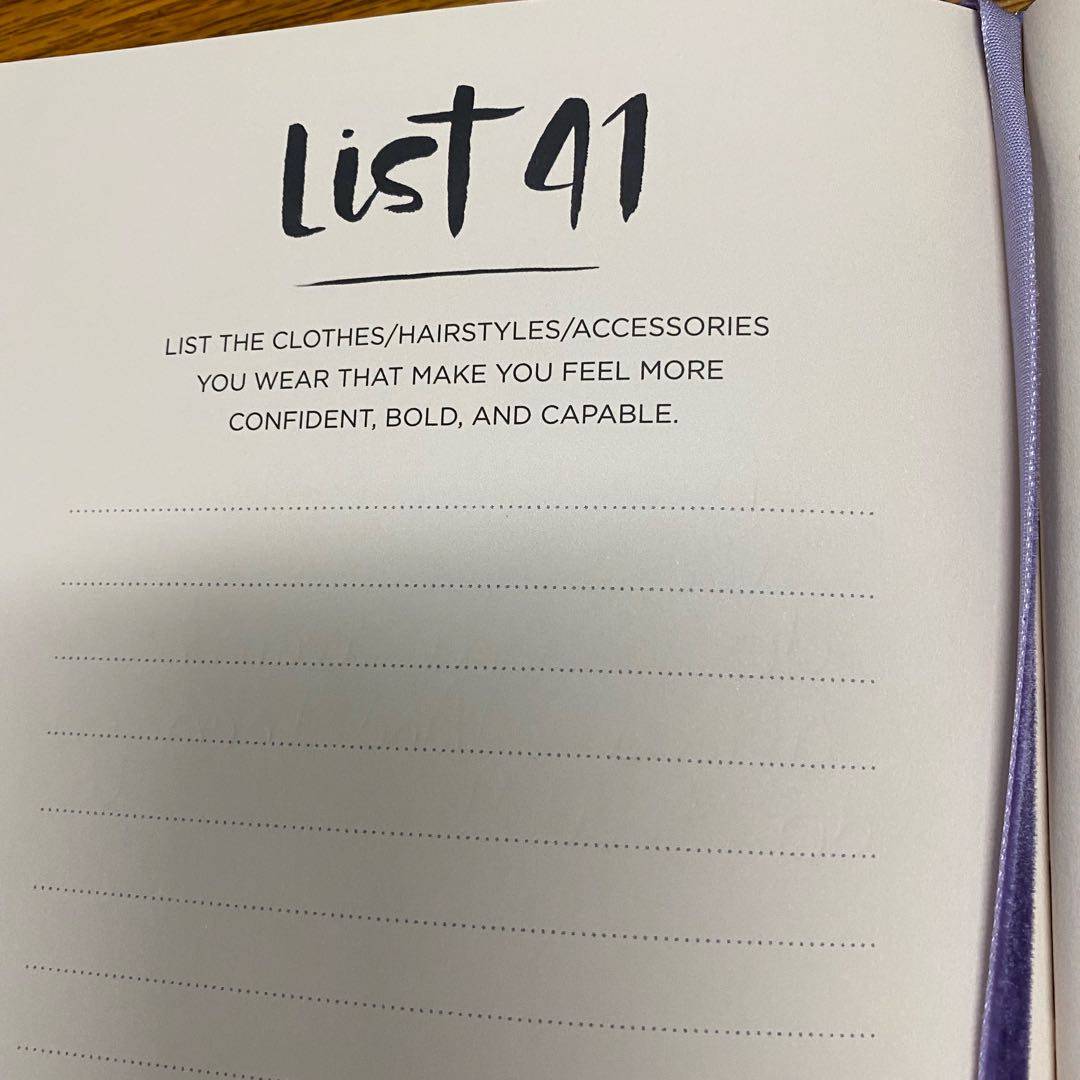 List 41
LIST THE CLOTHES/HAIRSTYLES/ACCESSORIES
YOU WEAR THAT MAKE YOU FEEL MORE
CONFIDENT, BOLD, AND CAPABLE.